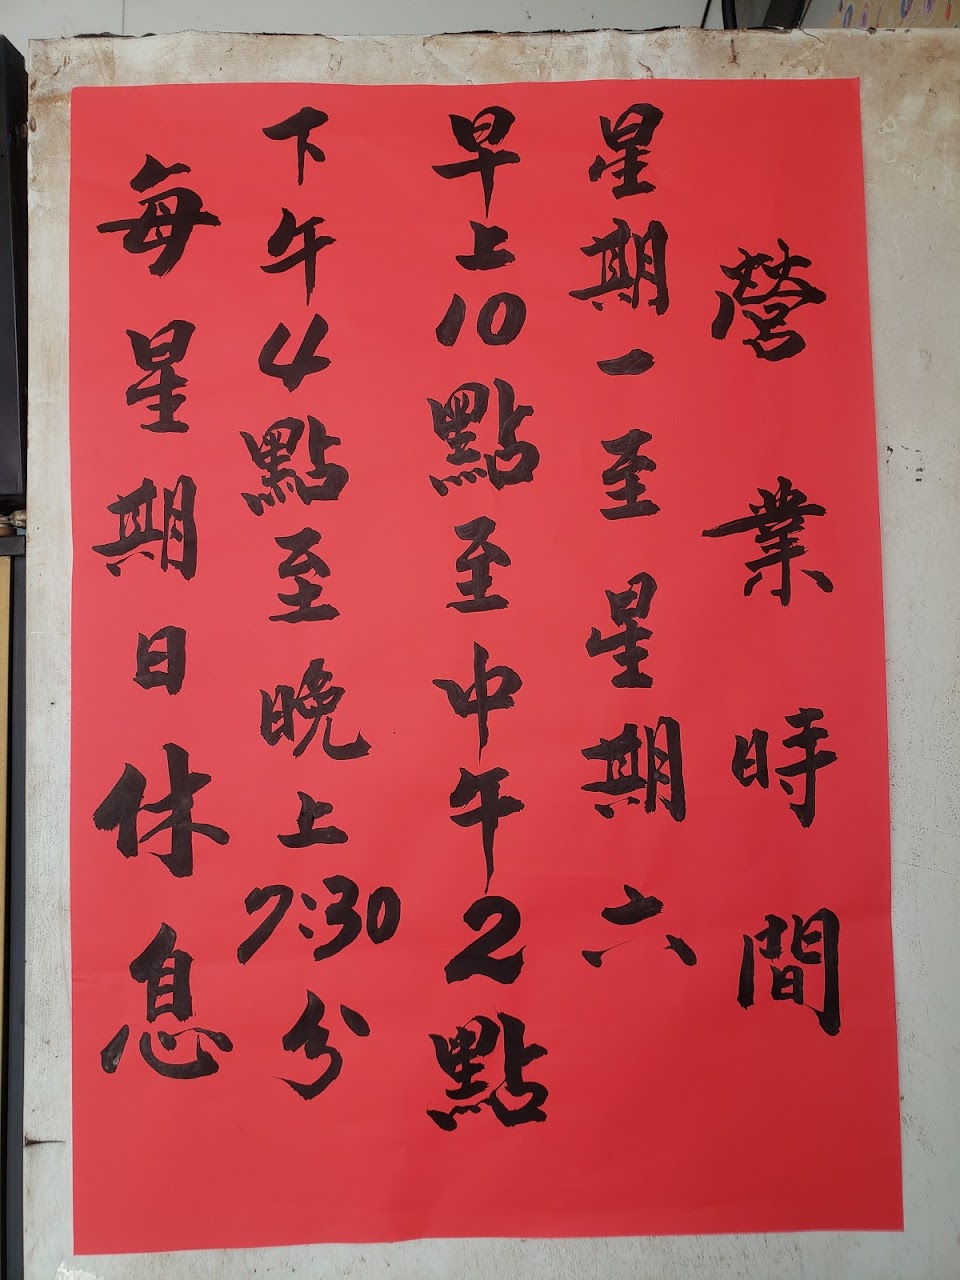 營業時間
星期一至星期六
早上10點至中午2點
下午4點至晚上7:30分
每星期日休息